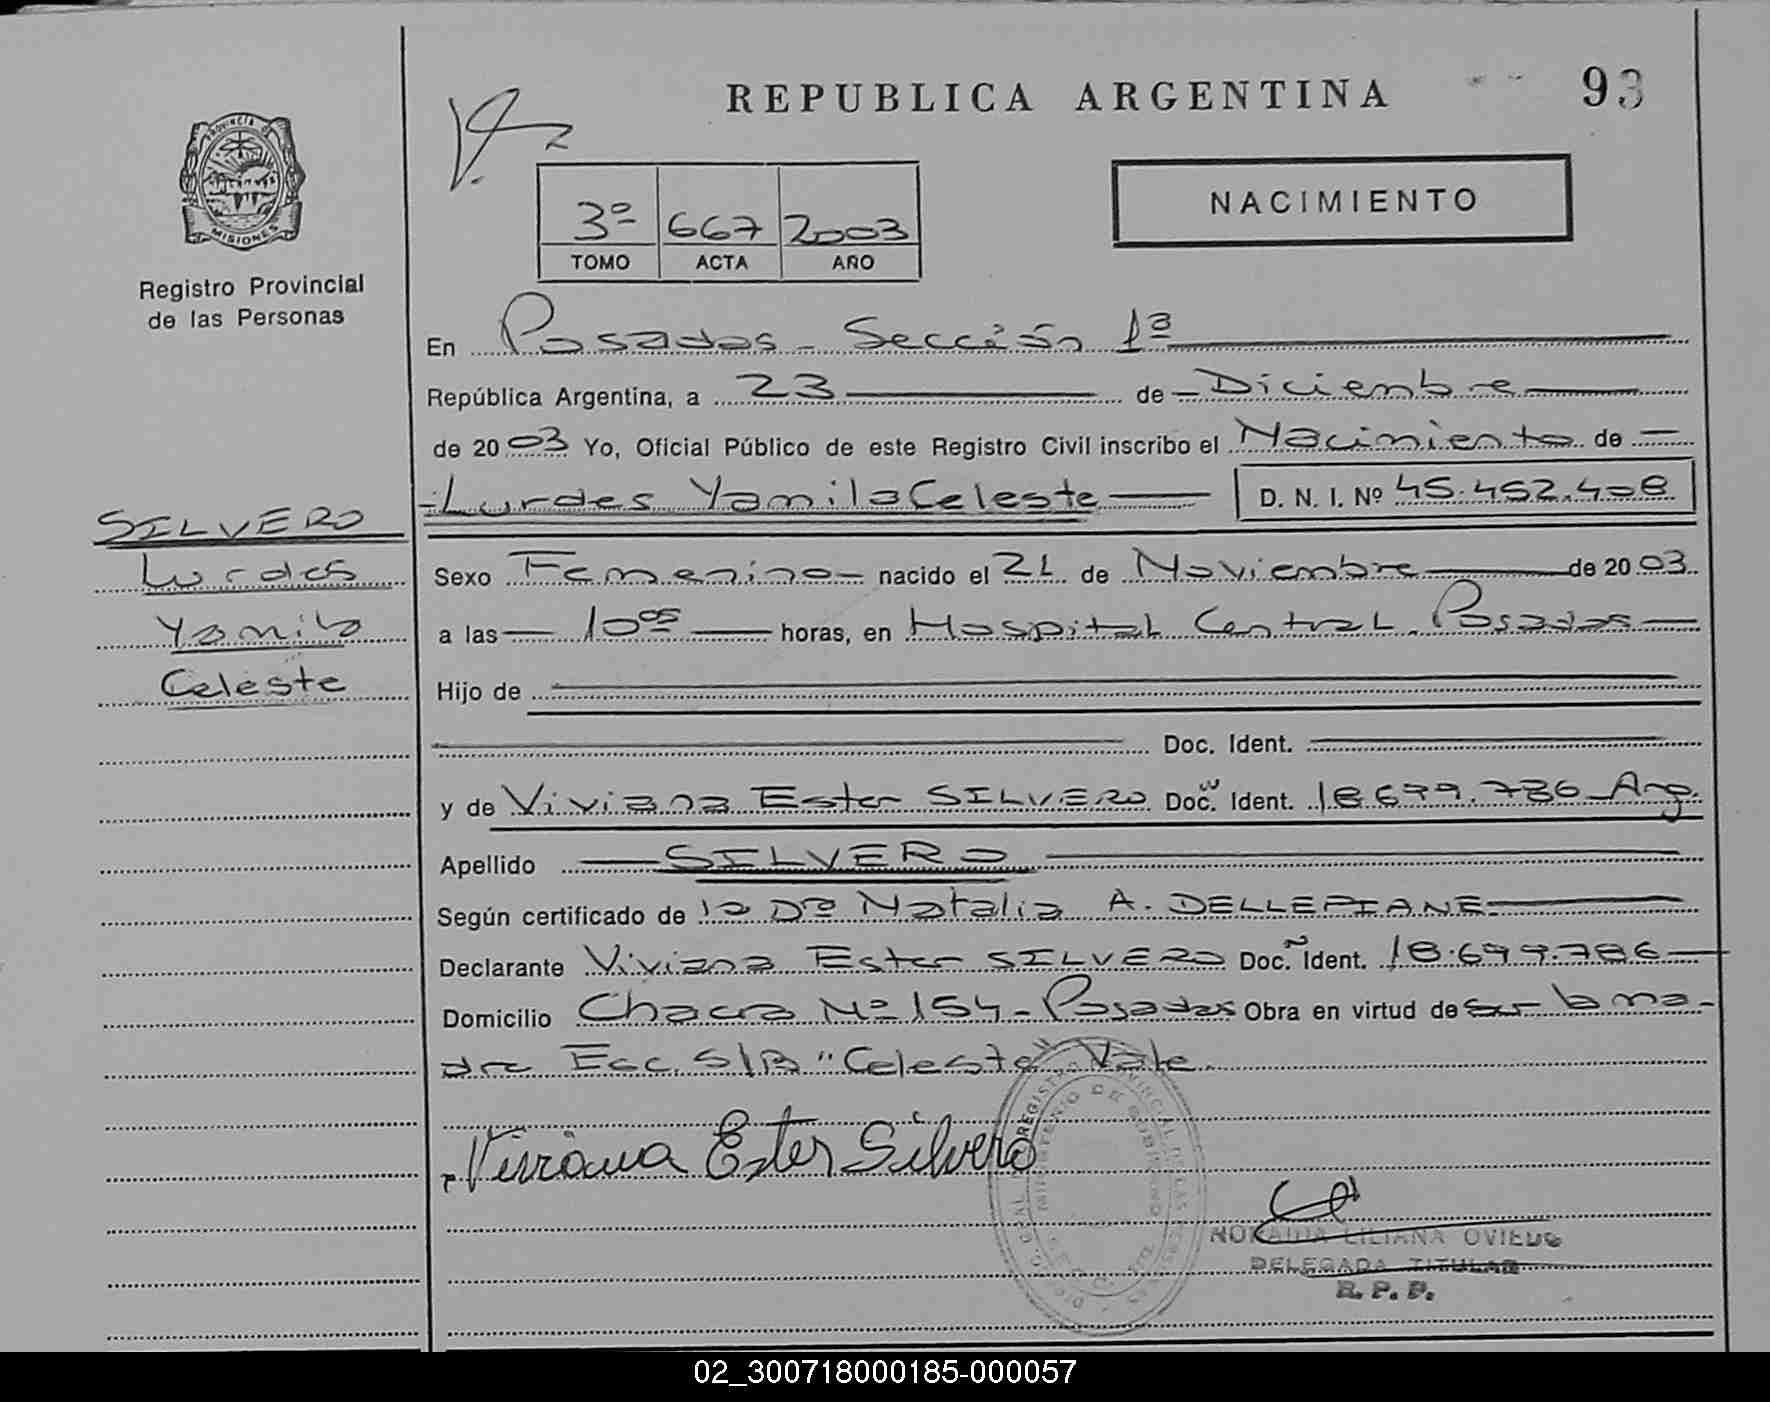 REPUBLICA ARGENTINA 93
PROVINCIA DE
MISIONES
Registro Provincial
de las Personas
3º 667 2003
TOMO ACTA AÑO
NACIMIENTO
En Posadas - Sección 1ª
República Argentina, a 23 de Diciembre
de 2003 Yo, Oficial Público de este Registro Civil inscribo el Nacimiento de
Lurdes Yamila Celeste D. N. I. Nº 45.452.408
SILVERO
Lurdes
Yamila
Celeste
Sexo Femenino nacido el 21 de Noviembre de 2003
a las 10 05 horas, en Hospital Central. Posadas
Hijo de
Doc. Ident.
y de Viviana Ester SILVERO Doc. Ident. 18.699.786 Arg.
Apellido SILVERO
Según certificado de la Drª Natalia A. DELLEPIANE.
Declarante Viviana Ester SILVERO Doc. Ident. 18.699.786
Domicilio Chacra Nº 154 - Posadas Obra en virtud de la ma-
dre S/B "Celeste" Vale.
Viviana Ester Silvero
LILIANA OVIEDO
DELEGADA TITULAR
R. P. P.
02_300718000185-000057